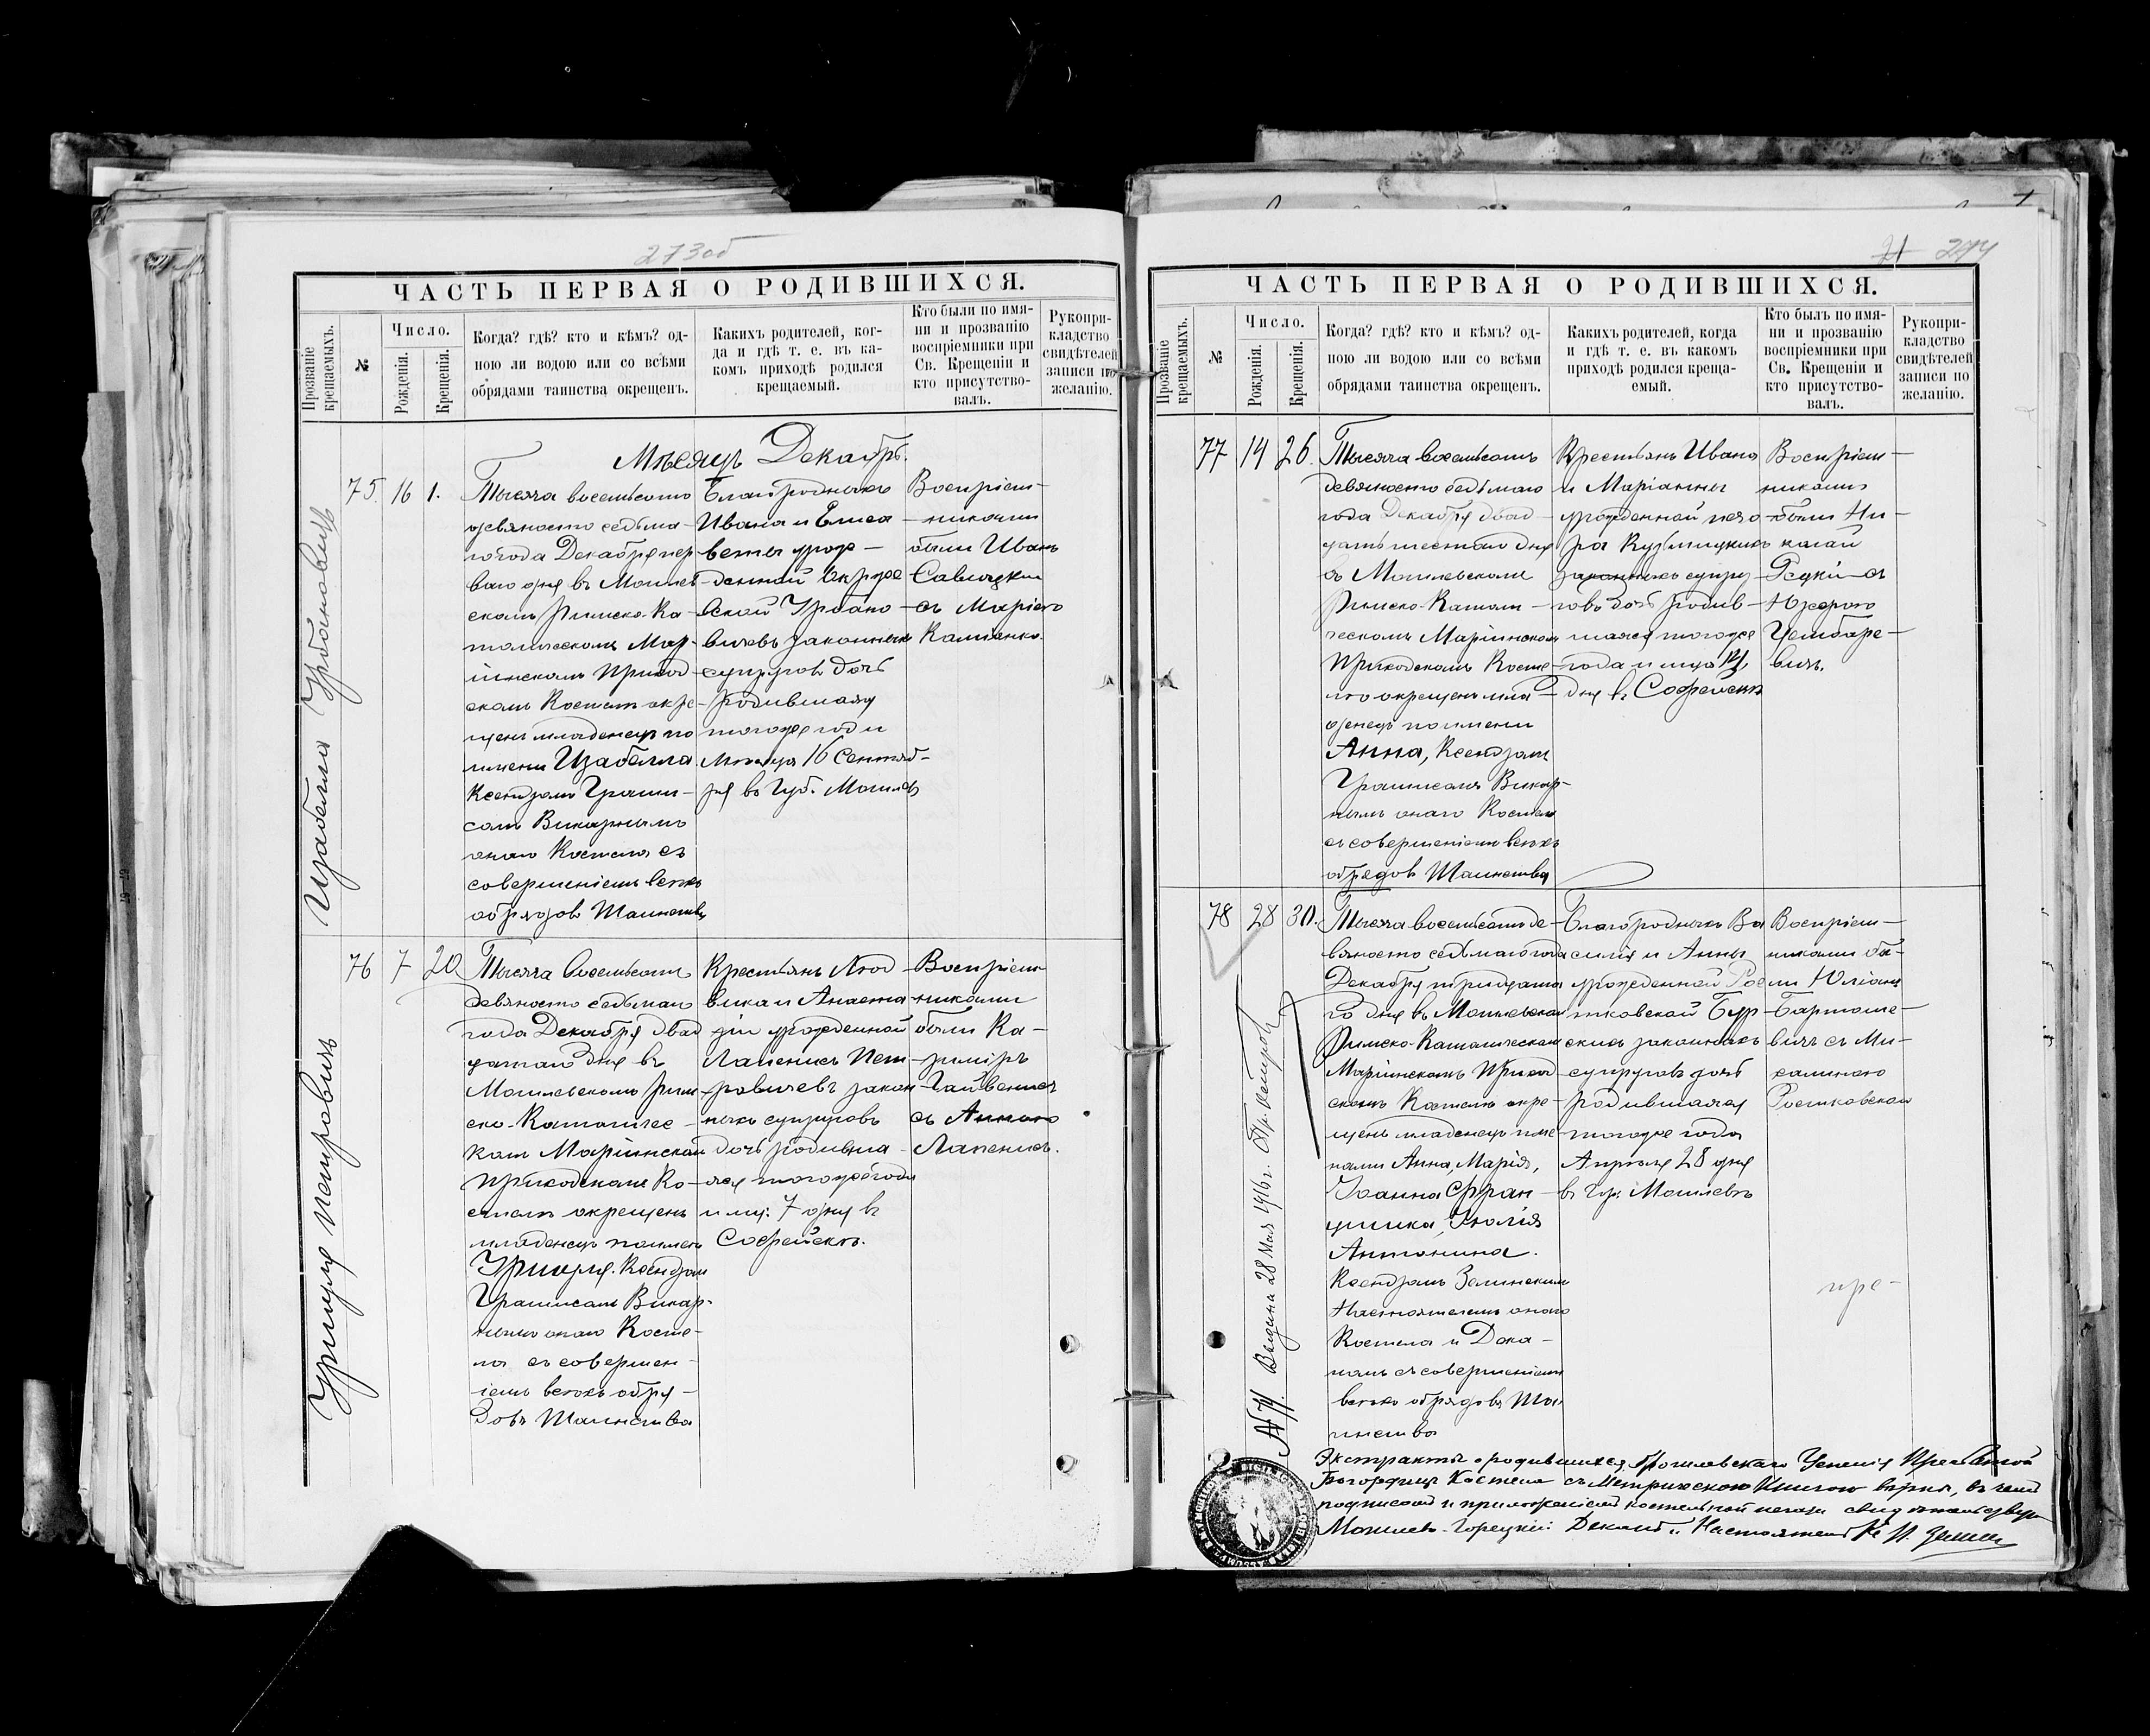 273об
ЧАСТЬ ПЕРВАЯ О РОДИВШИХСЯ.
Прозваніе крещаемыхъ.
№
Число.
Рожденія.
Крещенія.
Когда? гдѣ? кто и кѣмъ? од-
ною ли водою или со всѣми
обрядами таинства окрещенъ.
Какихъ родителей, ког-
да и гдѣ т. е. въ ка-
комъ приходѣ родился
крещаемый.
Кто были по имя-
ни и прозванію
воспріемники при
Св. Крещеніи и
кто присутство-
валъ.
Рукопри-
кладство
свидѣтелей
записи по
желанію.
Мѣсяцъ Декабрь.
Изабелла Урбановичъ
75. 16 1.
Тысяча восемьсотъ
девяносто седьма-
го года Декабря пер
ваго дня въ Могилев
скомъ Римско-Ка-
толическомъ Мар-
іинскомъ Приход
скомъ Костелѣ окре-
щенъ младенецъ по
имени Изабелла
Ксендзомъ
Викарнымъ
онаго Костела съ
совершеніемъ всѣхъ
обрядовъ Таинства
Благородныхъ
Ивана и Елиса
веты урож-
денной
Урбано-
вичевъ законныхъ
супруговъ дочь
родившаяся
того же года
Мѣсяца 16 Сентяб-
ря въ Губ. Могилевѣ
Воспріем-
никами
были Иванъ
Савицкій
съ Маріею
Каминко.
Уршуля Петровичъ
76 7 20
Тысяча восемьсотъ
девяносто седьмаго
года Декабря двад
цатаго дня въ
Могилевскомъ Рим
ско-Католичес-
комъ Маріинскомъ
Приходскомъ Ко-
стелѣ окрещенъ
младенецъ по имени
Уршуля. Ксендзомъ
Викар-
нымъ онаго Косте-
ла съ совершен-
іемъ всѣхъ обря-
довъ Таинства
Крестьянъ Люд
вика и Анаста
зіи урожденной
Лапенисъ Пет-
ровичевъ закон
ныхъ супруговъ
дочь родивша-
яся того же года
и мц: 7 дня въ
Софейскѣ.
Воспріем-
никами
были Ка-
зиміръ
съ Анною
Лапенисъ.
274
ЧАСТЬ ПЕРВАЯ О РОДИВШИХСЯ.
Прозваніе крещаемыхъ.
№
Число.
Рожденія.
Крещенія.
Когда? гдѣ? кто и кѣмъ? од-
ною ли водою или со всѣми
обрядами таинства окрещенъ.
Какихъ родителей, когда
и гдѣ т. е. въ какомъ
приходѣ родился креща-
емый.
Кто былъ по имя-
ни и прозванію
воспріемники при
Св. Крещеніи и
кто присутство-
валъ.
Рукопри-
кладство
свидѣтелей
записи по
желанію.
77 14 26.
Тысяча восемьсотъ
девяносто седьмаго
года Декабря двад-
цать шестаго дня
въ Могилевскомъ
Римско-Католи-
ческомъ Маріинскомъ
Приходскомъ Косте-
лѣ окрещенъ мла-
денецъ по имени
Анна, Ксендзомъ
Викар-
нымъ онаго Костела
съ совершеніемъ всѣхъ
обрядовъ Таинства
Крестьянъ Ивана
и Маріанны
урожденной
законныхъ супру-
говъ дочь родив-
шаяся того же
года и мца 14
дня въ Софейскѣ
Воспріем-
никами
были Ни-
колай
съ
78 28 30.
Тысяча восемьсотъ де-
вяносто седьмаго года
Декабря тридцата
го дня въ Могилевскомъ
Римско-Католическомъ
Маріинскомъ Приход
скомъ Костелѣ окре-
щенъ младенецъ име-
нами Анна, Марія,
Іоанна Фран-
цишка, Юлія
Антонина.
Ксендзомъ Зелинскимъ
Настоятелемъ онаго
Костела и Дека-
номъ съ совершеніемъ
всѣхъ обрядовъ Та-
инства
Благородныхъ Ва
силія и Анны
урожденной Рос
тковской Бур-
скихъ законныхъ
супруговъ дочь
родившаяся
того же года
Апрѣля 28 дня
въ Гор: Могилевѣ
Воспріем-
никами бы-
ли Юліанъ
Бартоше-
вичъ съ Ми-
халиною
Ростковской
№ 71. Выдана 28 Мая 1916 г.
Экстрактъ о родившихся Могилевскаго Успенія Пресвятой
Богородицы Костела съ Метрическою Книгою вѣренъ, въ чемъ
подписомъ и приложеніемъ костельной печати свидѣтельствую
Могилево-Горецкій Деканъ и Настоятель